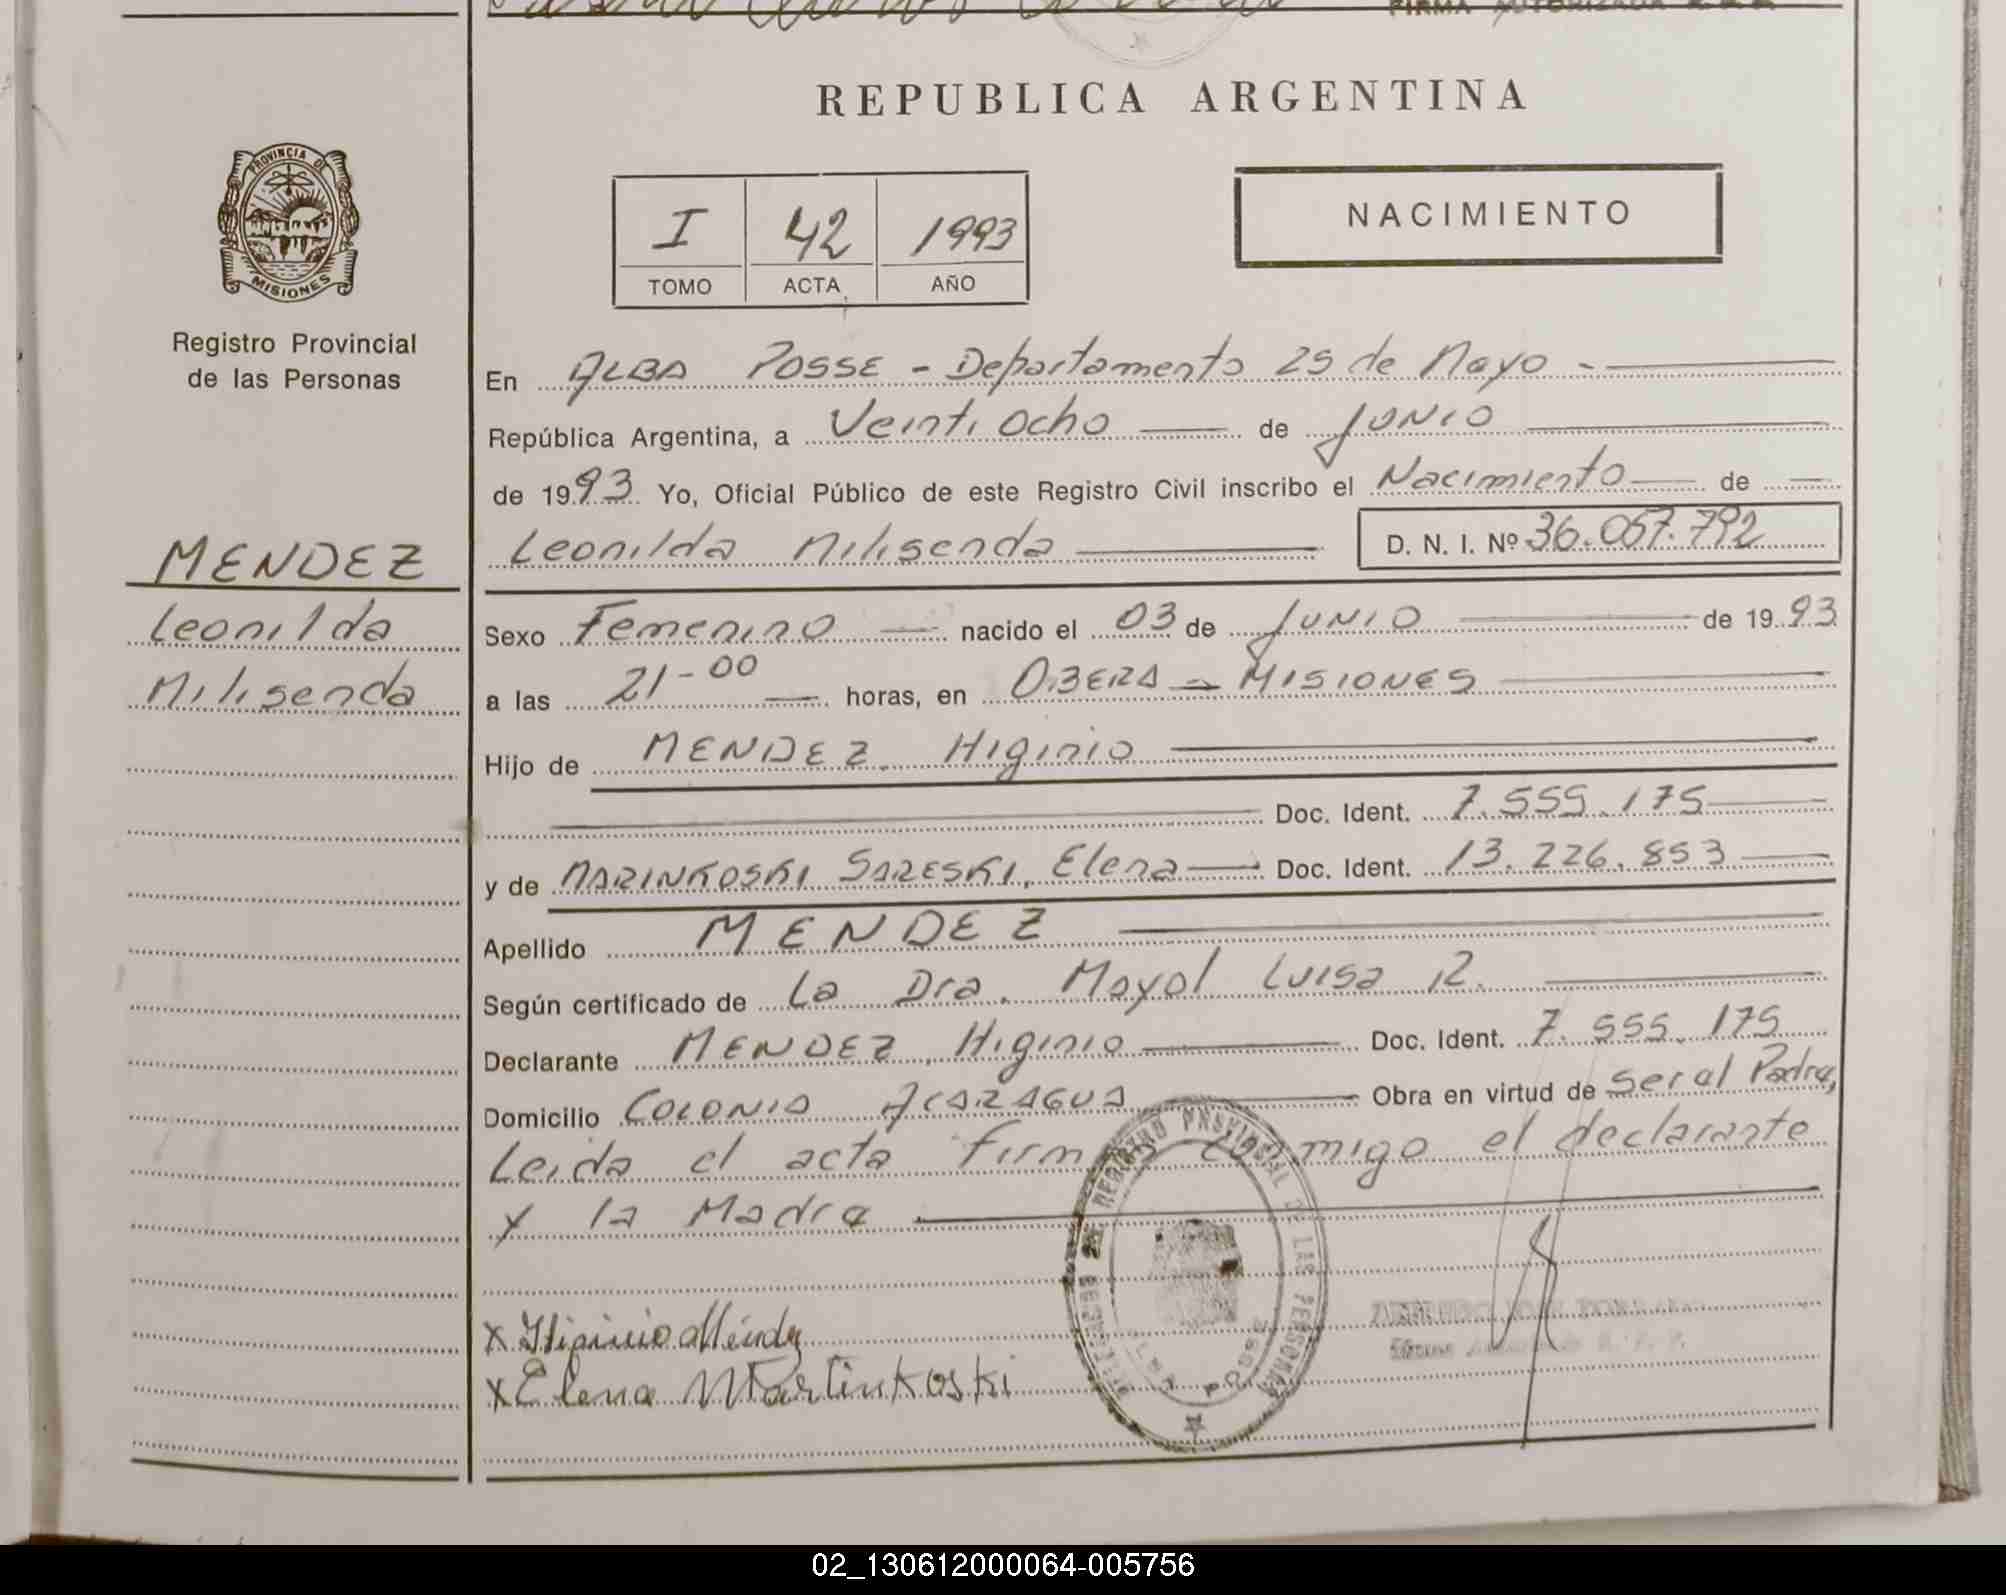 REPUBLICA ARGENTINA
PROVINCIA DE
MISIONES
Registro Provincial
de las Personas
I 42 1993
TOMO ACTA AÑO
NACIMIENTO
En ALBA POSSE - Departamento 25 de Mayo -
República Argentina, a Veinti ocho de JUNIO
de 1993 Yo, Oficial Público de este Registro Civil inscribo el Nacimiento de
Leonilda Milisenda D. N. I. Nº 36.057.792
MENDEZ
Leonilda
Milisenda
Sexo Femenino nacido el 03 de JUNIO de 1993
a las 21-00 horas, en OBERA - MISIONES
Hijo de MENDEZ, Higinio
Doc. Ident. 7.555.175
y de MARINKOSKI SARESKI, Elena Doc. Ident. 13.226.853
Apellido MENDEZ
Según certificado de La Dra. Mayol Luisa R.
Declarante MENDEZ, Higinio Doc. Ident. 7.555.175
Domicilio COLONIA ACARAGUA Obra en virtud de ser al Padre,
Leida el acta firman conmigo el declarante
y la Madre
x Higinio Méndez
x Elena Martinkoski
REGISTRO PROVINCIAL DE LAS PERSONAS
02_130612000064-005756